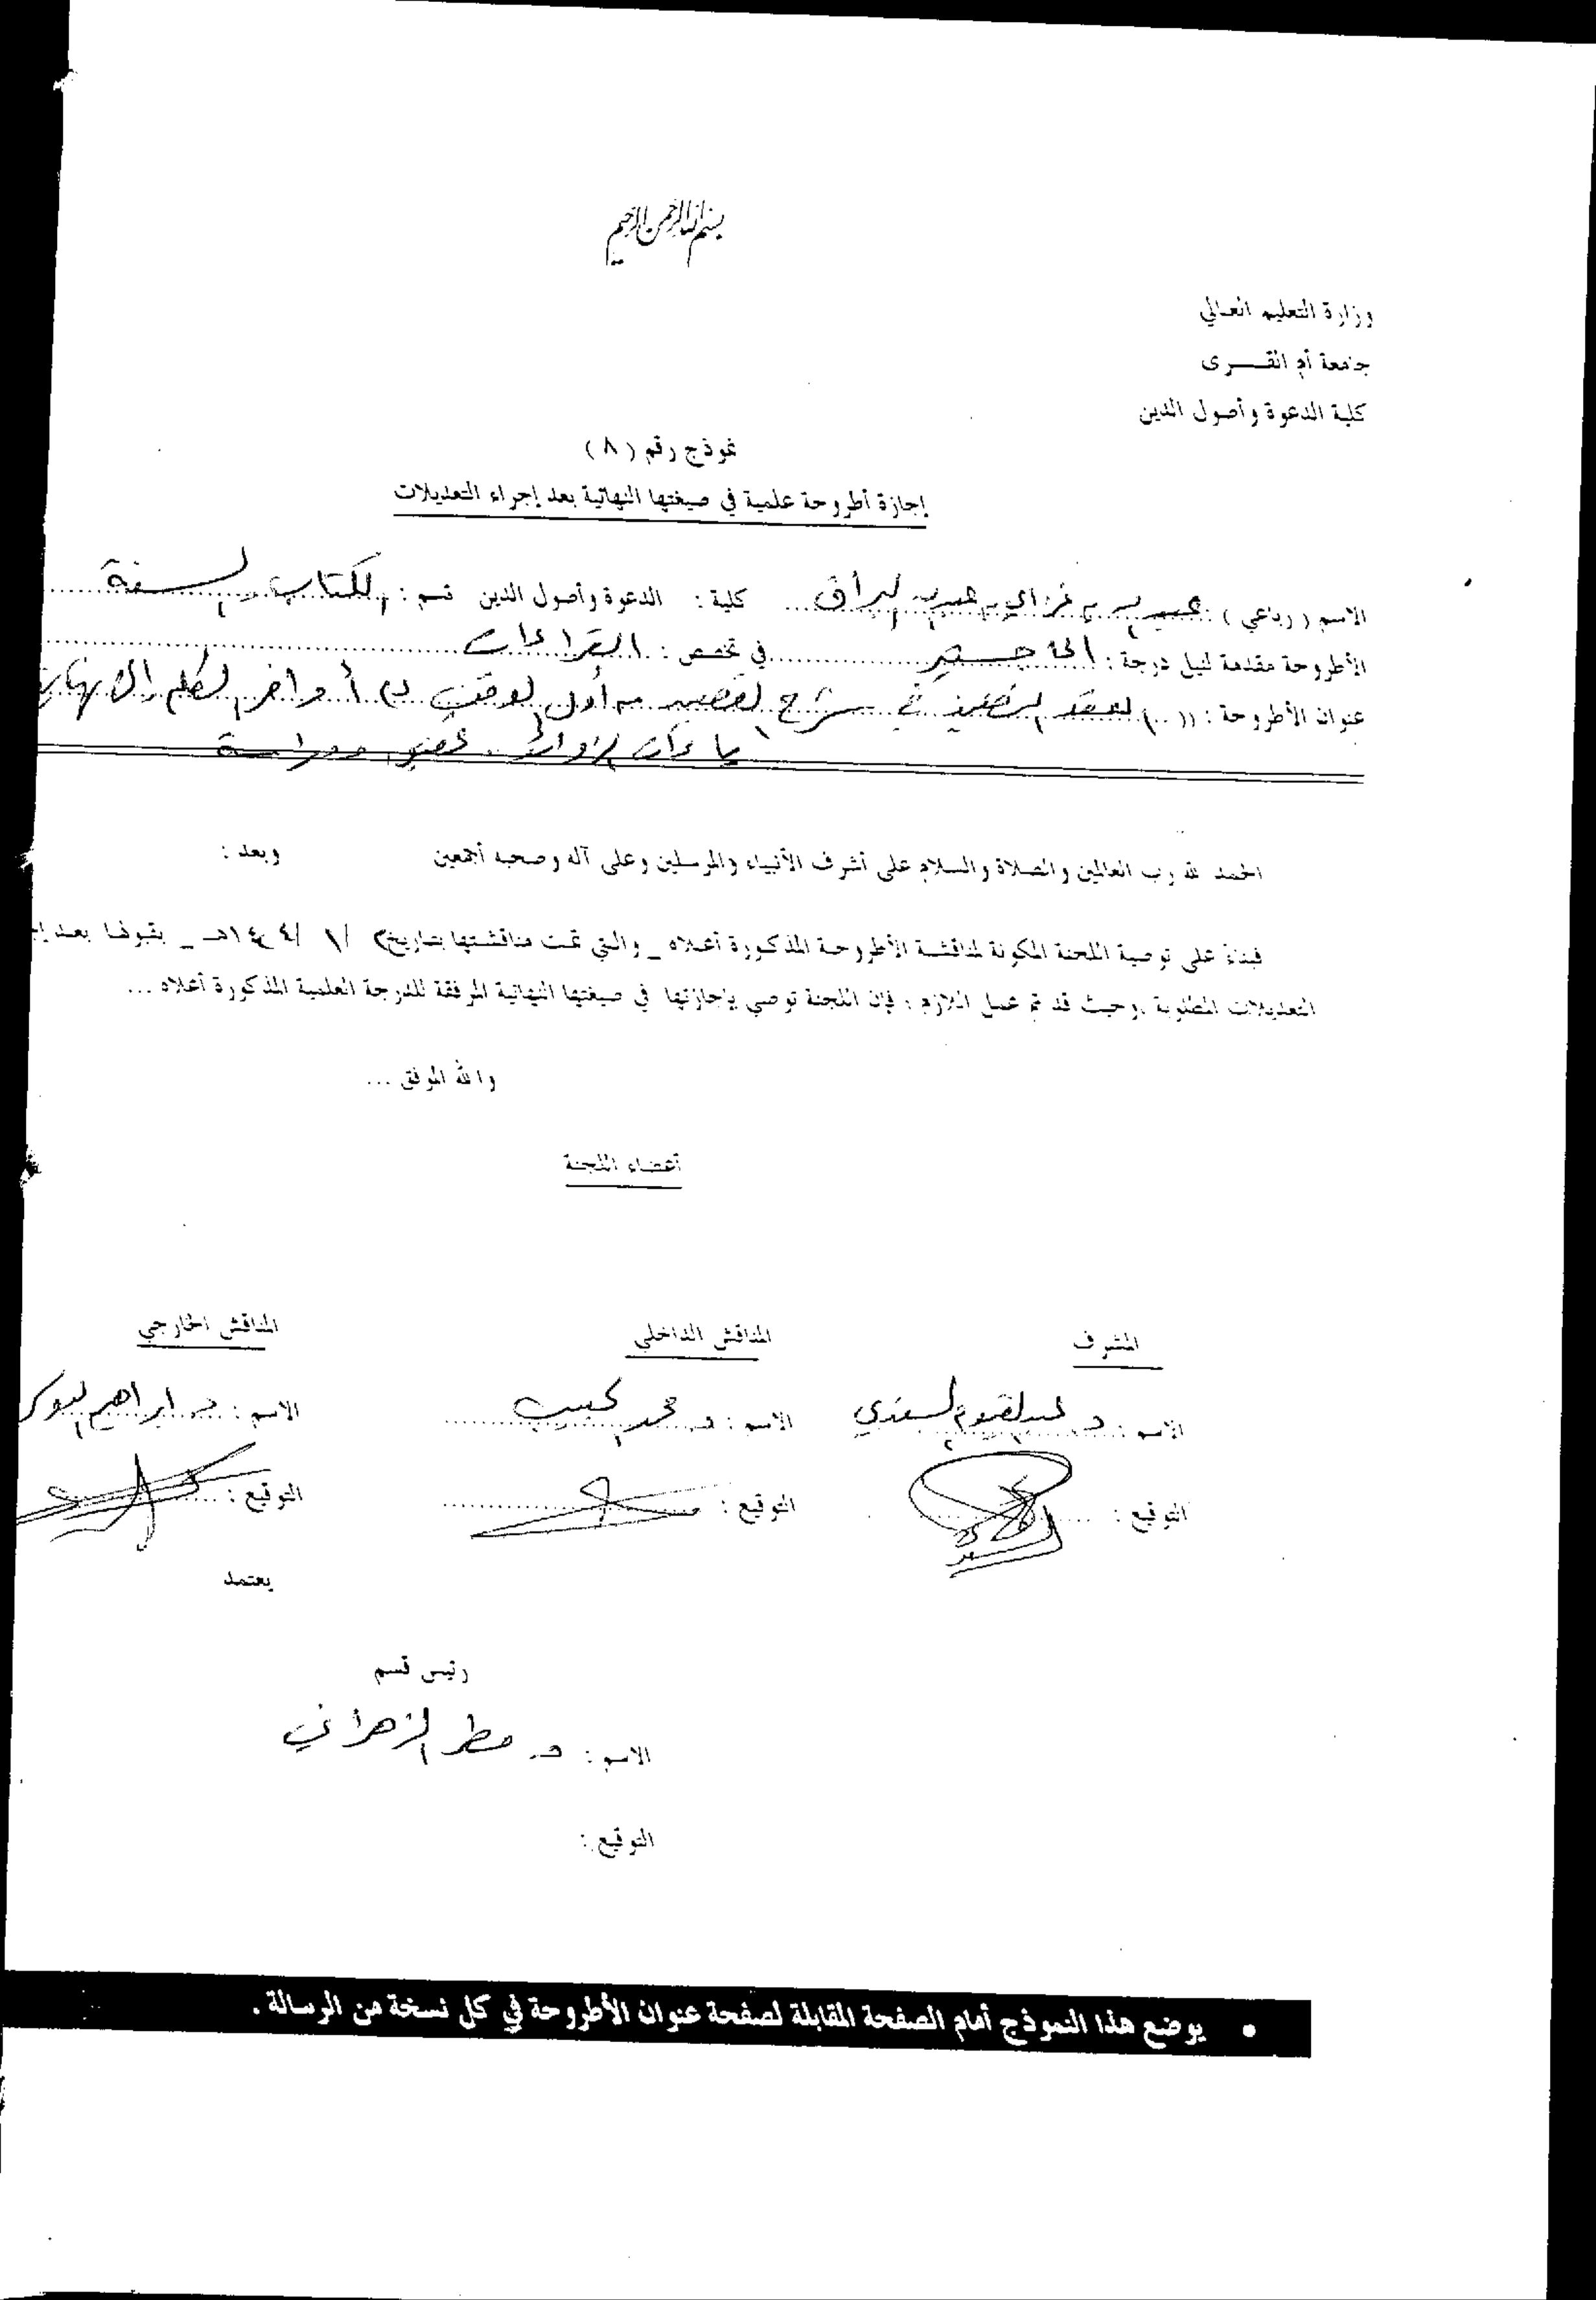 بسم الله الرحمن الرحيم
وزارة التعليم العالي
جامعة أم القــــرى
كلية الدعوة وأصول الدين
نموذج رقم ( ٨ )
إجازة أطروحة علمية في صيغتها النهائية بعد إجراء التعديلات
الاسم ( رباعي ) : كلية : الدعوة وأصول الدين قسم : الكتاب والسنة
الأطروحة مقدمة لنيل درجة : الماجستير في تخصص : القراءات
عنوان الأطروحة : (( العقد النضيد في شرح القصيد من أول الوقف على أواخر الكلم إلى نهاية
ياءات الزوائد . تحقيق ودراسة
الحمد لله رب العالمين والصلاة والسلام على أشرف الأنبياء والمرسلين وعلى آله وصحبه أجمعين وبعد :
فبناءً على توصية اللجنة المكونة لمناقشة الأطروحة المذكورة أعلاه _ والتي تمت مناقشتها بتاريخ _ بقبولها بعد
التعديلات المطلوبة ، وحيث قد تم عمل اللازم ؛ فإن اللجنة توصي بإجازتها في صيغتها النهائية المرفقة للدرجة العلمية المذكورة أعلاه ...
والله الموفق ...
أعضاء اللجنة
المشرف المناقش الداخلي المناقش الخارجي
الاسم : د. عبدالقيوم السندي الاسم : د. محمد الحبيب الاسم : د. ابراهيم
التوقيع : التوقيع : التوقيع :
يعتمد
رئيس قسم
الاسم : د. مطر الزهراني
التوقيع :
• يوضع هذا النموذج أمام الصفحة المقابلة لصفحة عنوان الأطروحة في كل نسخة من الرسالة .